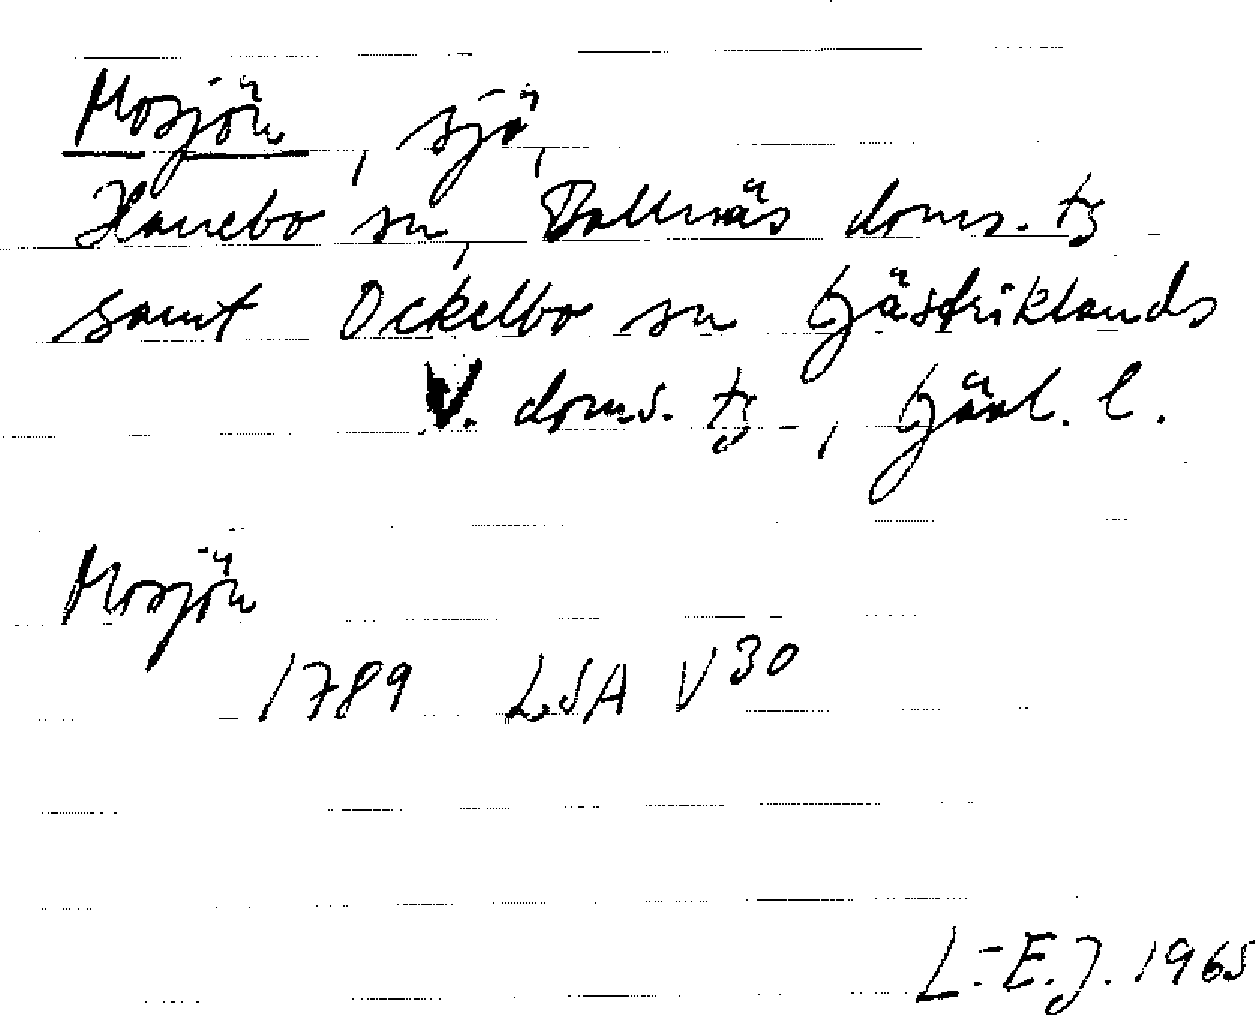 Mosjön, sjö,
Hanebo sn, Bollnäs doms. tg
samt Ockelbo sn Gästriklands
V. doms. tg, Gävl. l.
Mosjön
1789 LSA V30
L.-E.J. 1965